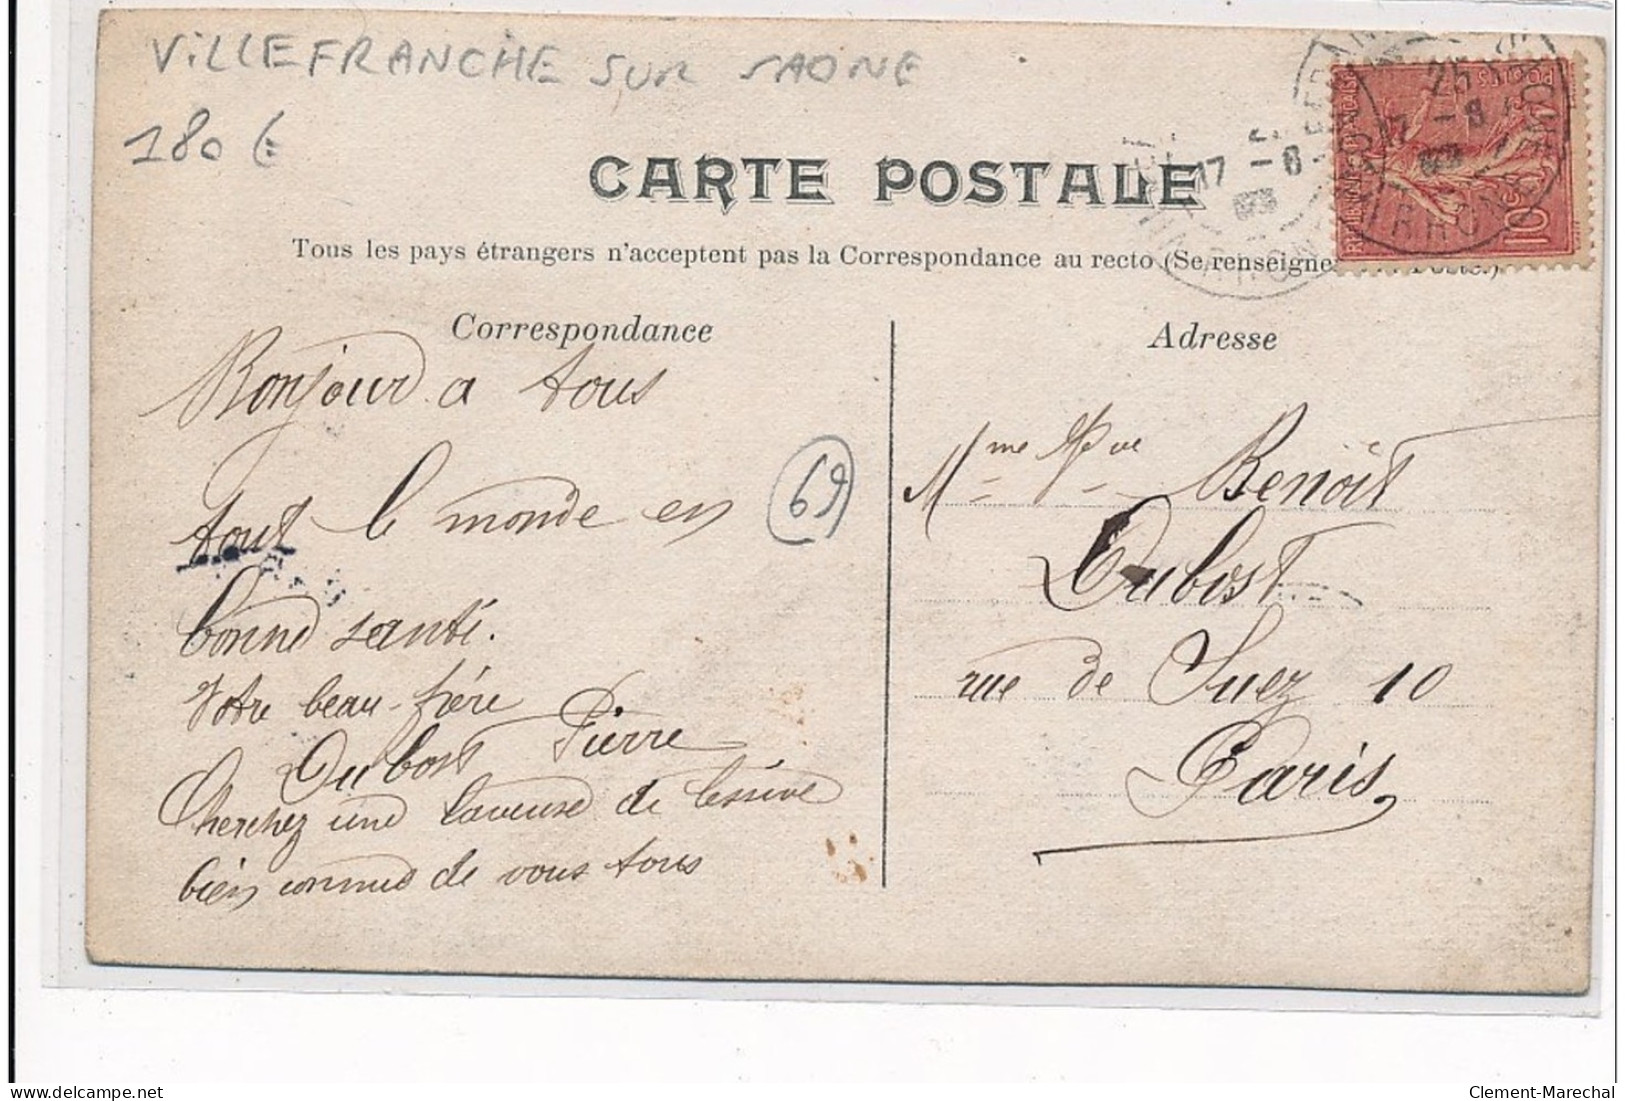 VILLEFRANCHE SUR SAONE
180 €
CARTE POSTALE
Tous les pays étrangers n'acceptent pas la Correspondance au recto (Se renseigner
Correspondance
Bonjour a tous
tout le monde en
69
bonne santé.
Votre beau-frère
Dubost Pierre
Cherchez une laveuse de lessive
bien connue de vous tous
Adresse
Mme Vve Benoit
Dubost
rue de Suez 10
Paris
10c
17 -8
25
17 -8
RHONE
delcampe.net
Clement-Marechal